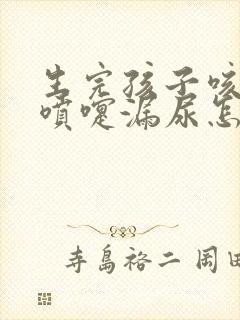 生完孩子咳
喷嚏漏尿怎
寺島裕二 岡田